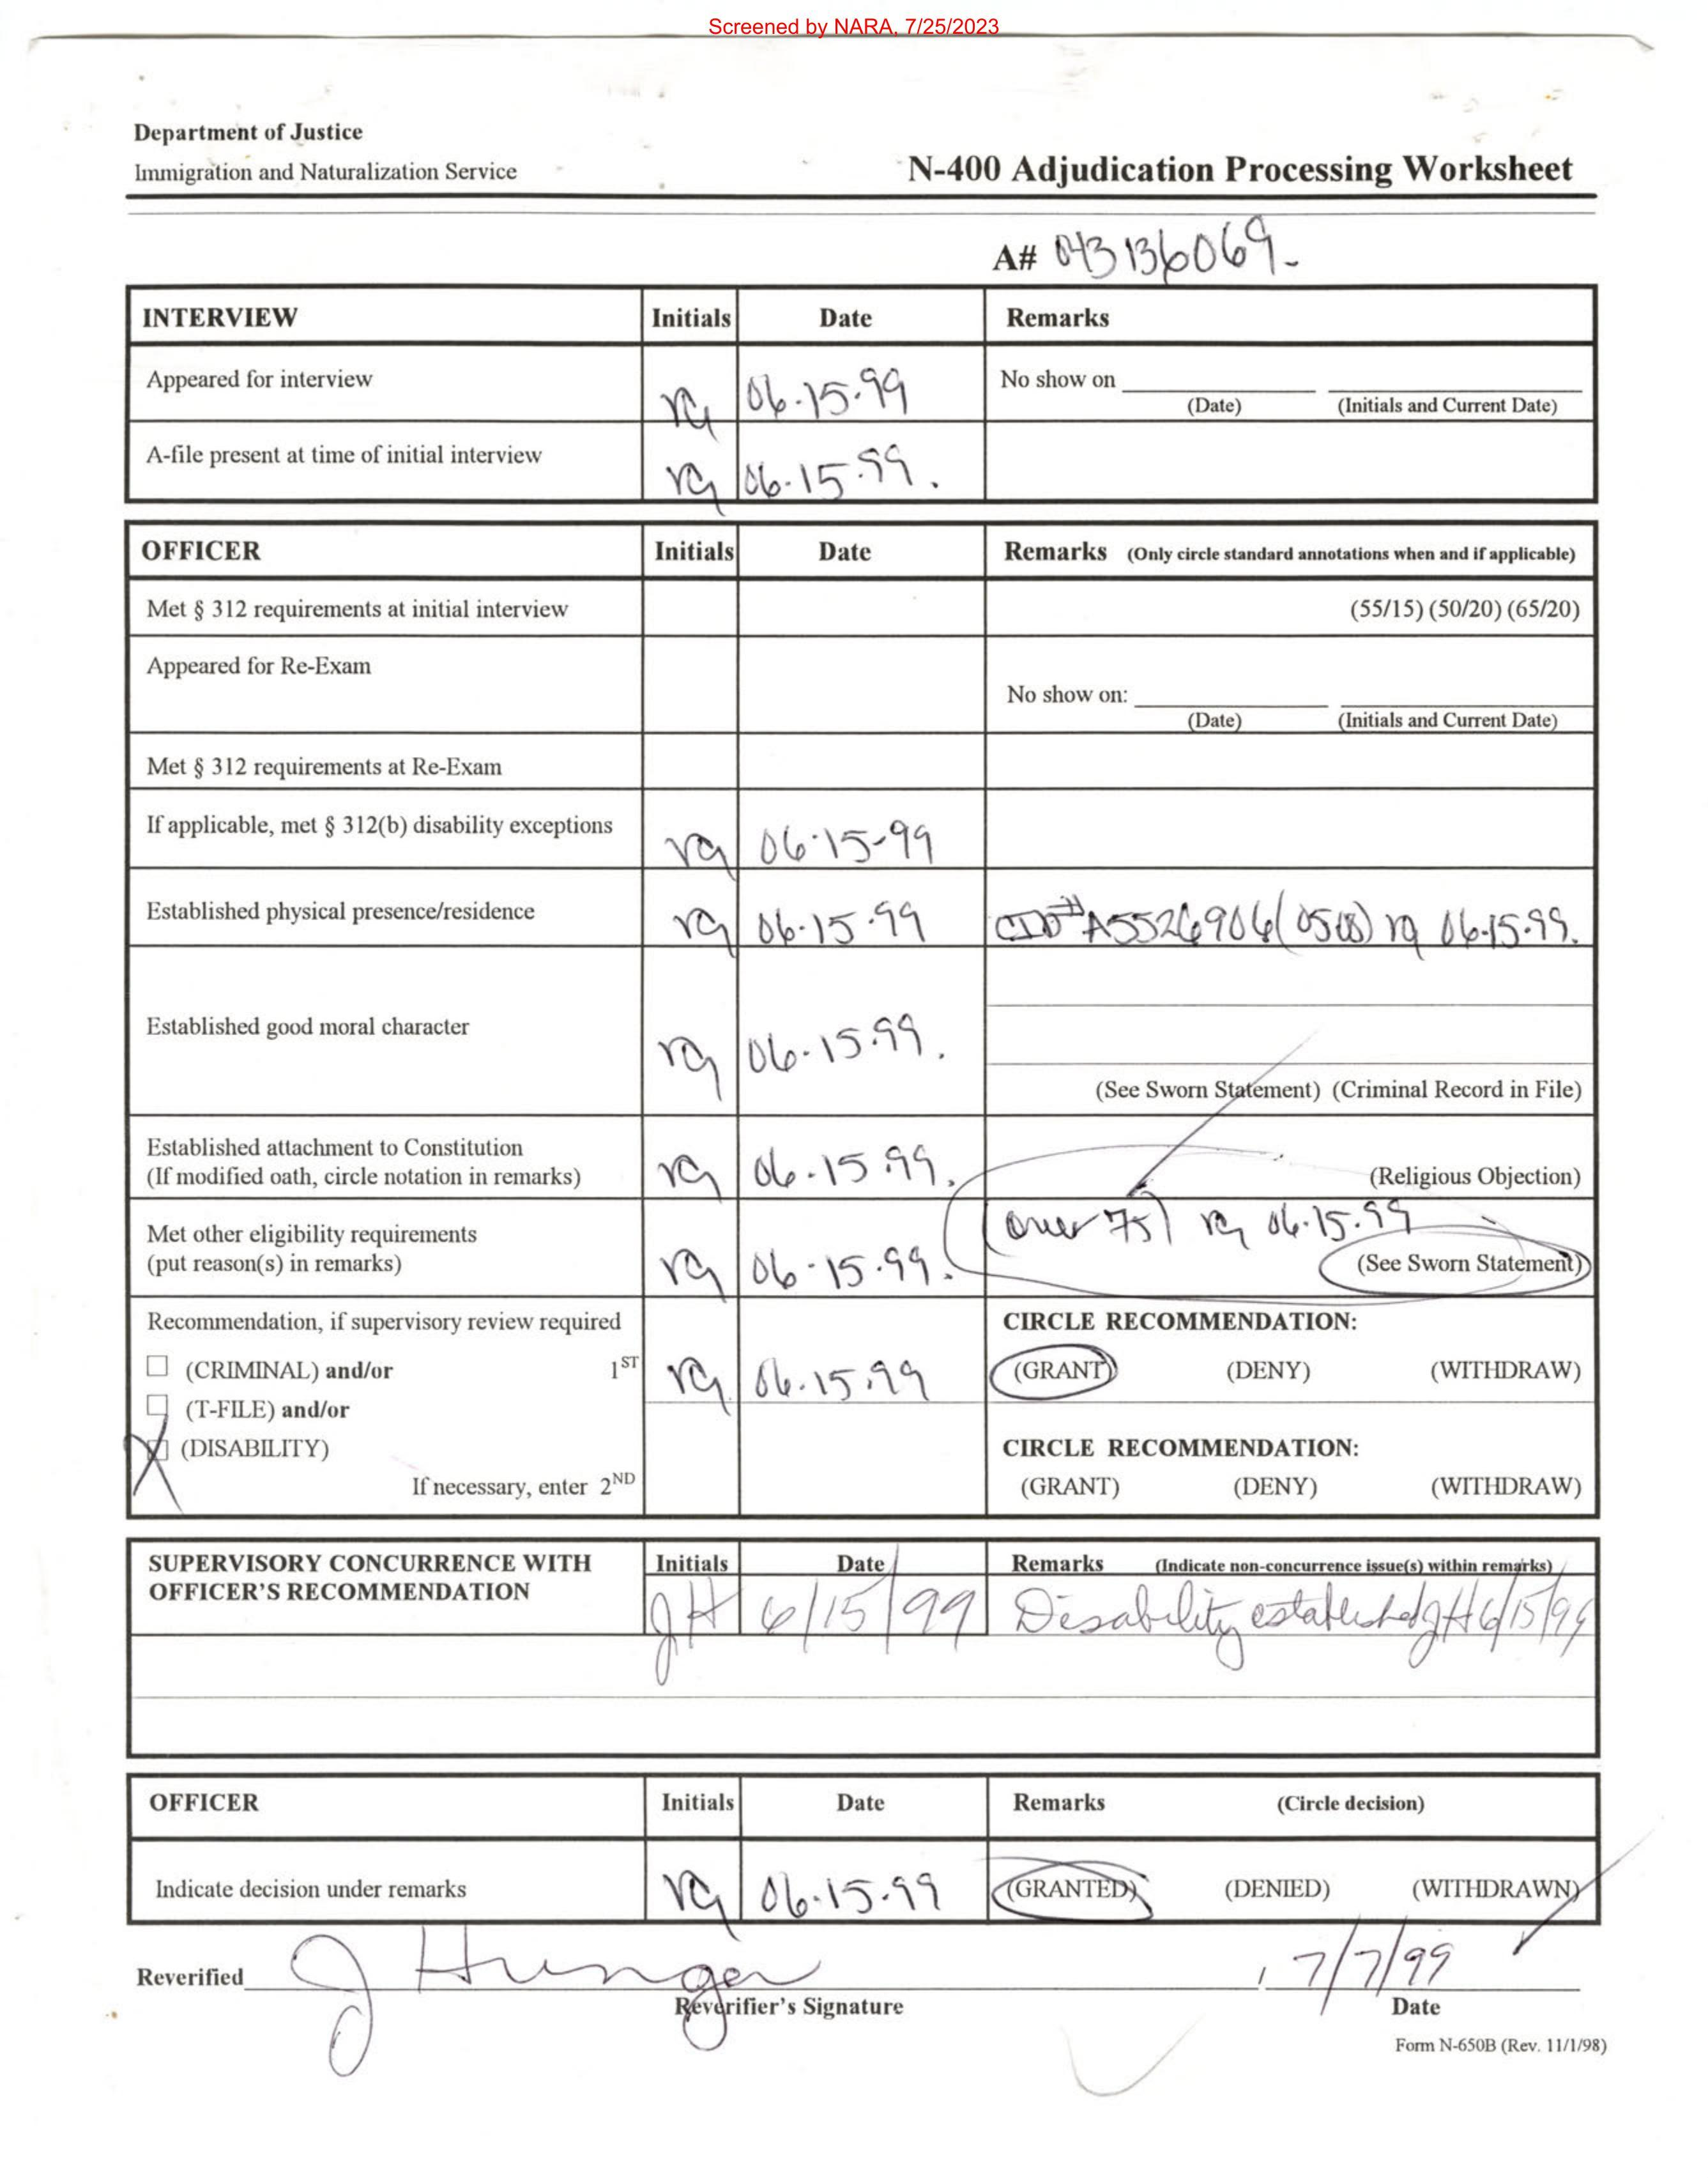 Screened by NARA, 7/25/2023
Department of Justice
Immigration and Naturalization Service
N-400 Adjudication Processing Worksheet
A# 043136069-
INTERVIEW Initials Date Remarks
Appeared for interview rg 06-15-99 No show on
(Date) (Initials and Current Date)
A-file present at time of initial interview rg 06-15-99.
OFFICER Initials Date Remarks (Only circle standard annotations when and if applicable)
Met § 312 requirements at initial interview (55/15) (50/20) (65/20)
Appeared for Re-Exam
No show on:
(Date) (Initials and Current Date)
Met § 312 requirements at Re-Exam
If applicable, met § 312(b) disability exceptions rg 06-15-99
Established physical presence/residence rg 06-15-99 CID# A5526906 rg 06-15-99.
Established good moral character rg 06-15-99.
(See Sworn Statement) (Criminal Record in File)
Established attachment to Constitution
(If modified oath, circle notation in remarks) rg 06-15-99. (Religious Objection)
Met other eligibility requirements (over 75) rg 06-15-99
(put reason(s) in remarks) rg 06-15-99. (See Sworn Statement)
Recommendation, if supervisory review required CIRCLE RECOMMENDATION:
(CRIMINAL) and/or 1ST rg 06-15-99 (GRANT) (DENY) (WITHDRAW)
(T-FILE) and/or
X (DISABILITY) CIRCLE RECOMMENDATION:
If necessary, enter 2ND (GRANT) (DENY) (WITHDRAW)
SUPERVISORY CONCURRENCE WITH Initials Date Remarks (Indicate non-concurrence issue(s) within remarks)
OFFICER'S RECOMMENDATION JH 6/15/99 Disability established JH 6/15/99
OFFICER Initials Date Remarks (Circle decision)
Indicate decision under remarks rg 06-15-99 (GRANTED) (DENIED) (WITHDRAWN)
Reverified J Hunger, 7/7/99
Reverifier's Signature Date
Form N-650B (Rev. 11/1/98)